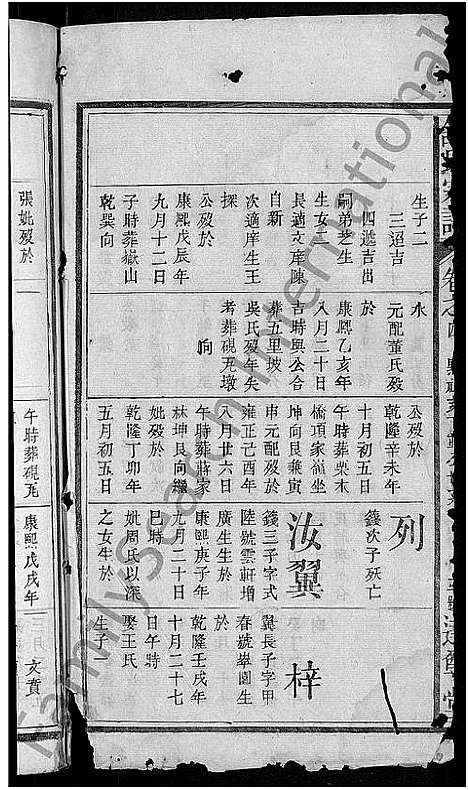 生子二
三迢吉
四遞吉出
嗣弟芝生
生女二
長適文庠陳
自新
次適庠生王
探
公歿於
康熙戊辰年
九月十二日
子時葬嶽山
乾巽向
永
元配董氏歿
於
康熙乙亥年
八月二十日
吉時與公合
葬五里坡
吳氏歿年失
考葬硯瓦墩
向
公歿於
乾隆辛未年
十月初五日
午時葬栗木
橋項家嶺坐
坤向艮兼寅
申元配歿於
雍正己酉年
八月廿六日
午時葬蔣家
林坤艮向繼
妣歿於
乾隆丁卯年
五月初五日
列
錢次子殀亡
汝翼
錢三子字式
陸號雲軒增
廣生生於
康熙庚子年
九月二十日
巳時
妣周氏以深
之女生於
梓
翼長子字甲
春號攀園生
於
乾隆壬戌年
十月二十七
日午時
娶王氏
生子一
張妣歿於
午時葬硯瓦
康熙戊戌年
三月
文賁
FamilySearch International